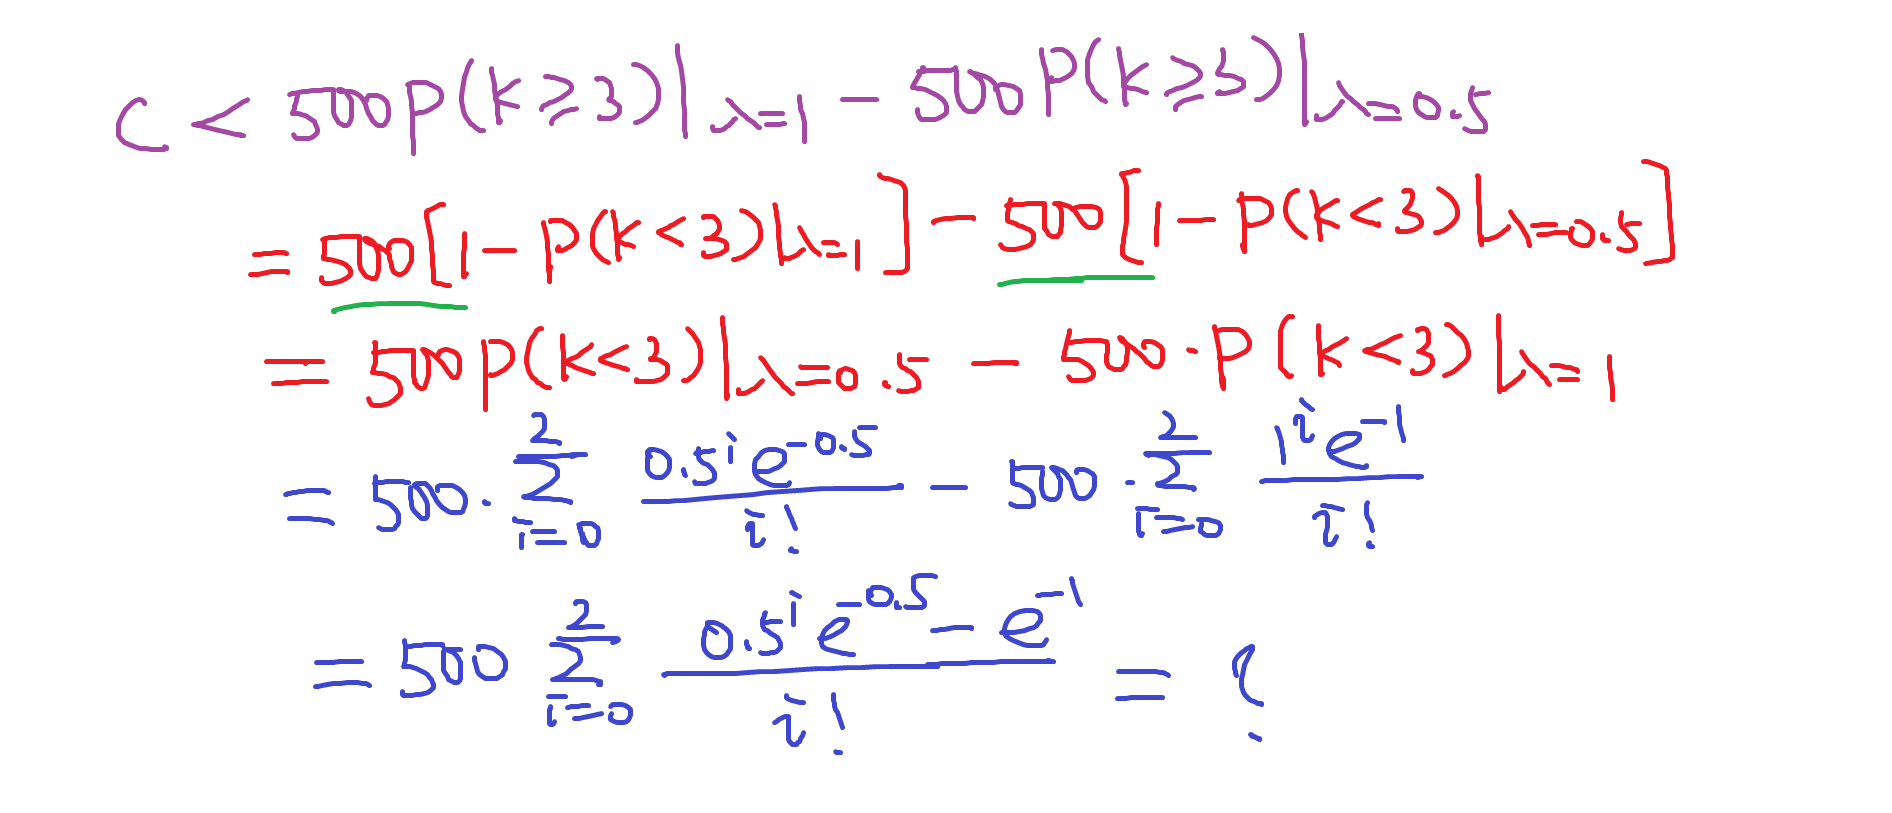 C < 500P(K≥3)|λ=1 - 500P(K≥3)|λ=0.5
= 500[1-P(K<3)|λ=1] - 500[1-P(K<3)|λ=0.5]
= 500P(K<3)|λ=0.5 - 500·P(K<3)|λ=1
= 500·∑_{i=0}^{2} \frac{0.5^i e^{-0.5}}{i!} - 500·∑_{i=0}^{2} \frac{1^i e^{-1}}{i!}
= 500 ∑_{i=0}^{2} \frac{0.5^i e^{-0.5} - e^{-1}}{i!} = ?